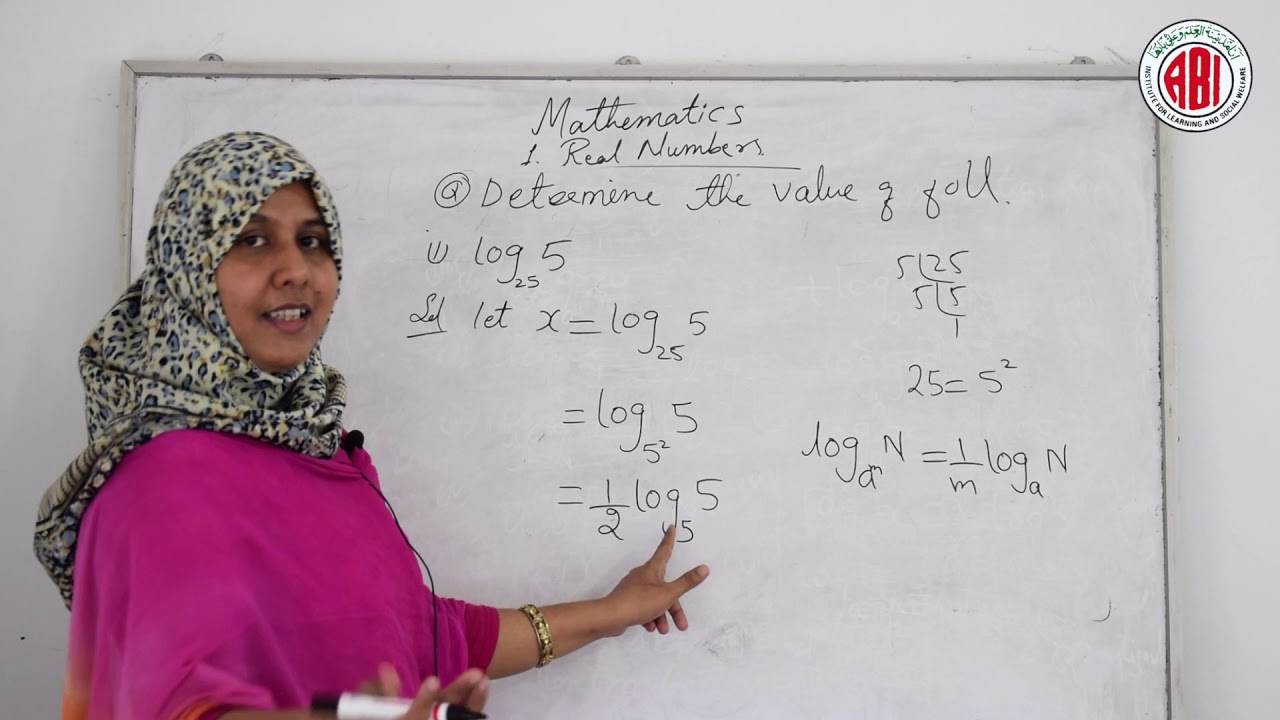 Mathematics
1. Real Numbers
Q Determine the value of foll.
i) log₂₅ 5
Sol let x = log₂₅ 5
= log₅² 5
= 1/2 log₅ 5
5 | 25
5 | 5
1
25 = 5²
logₐᵐ N = 1/m logₐ N
ABI
INSTITUTE FOR LEARNING AND SOCIAL WELFARE